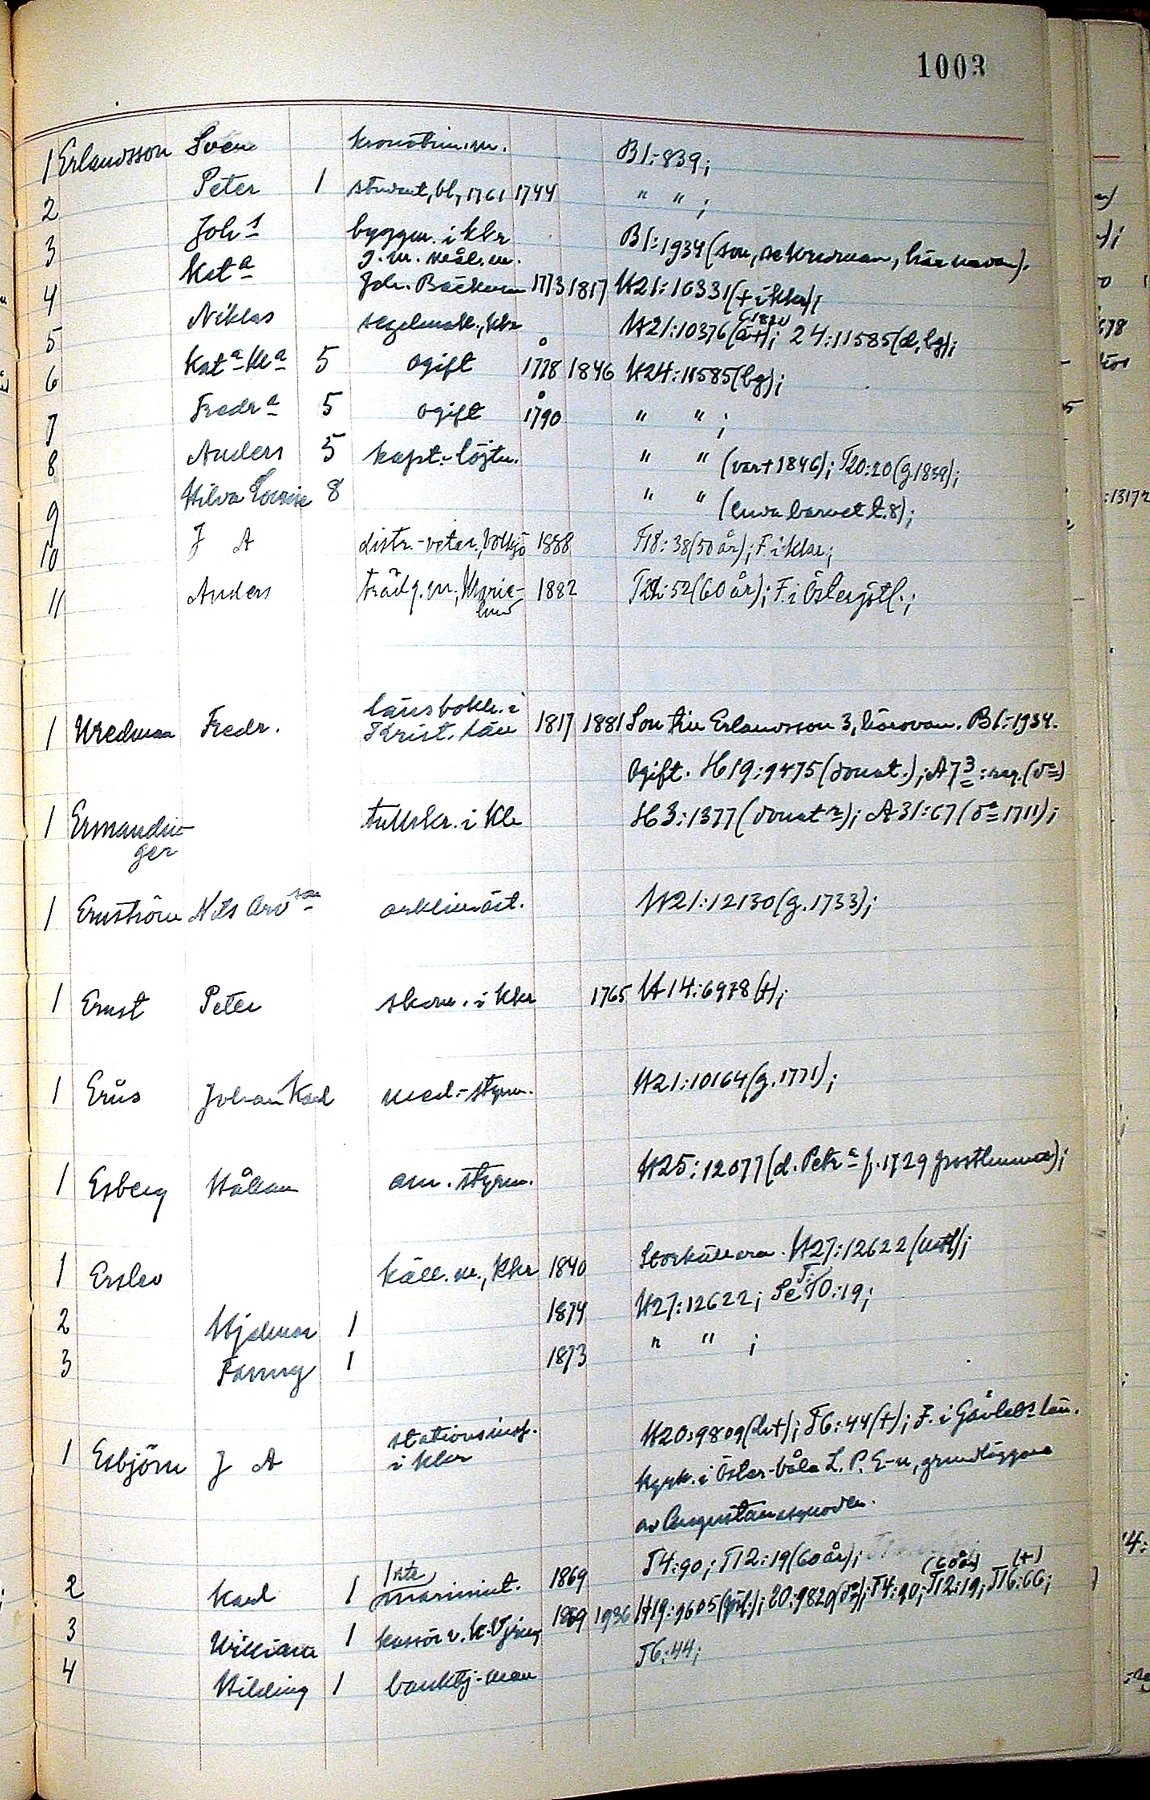 1003
1 Erlandsson Sven kronotim.m. Bl:839;
2 Peter 1 student, bl, 1761 1744 " " ;
3 Johs byggm. i Kkr Bl:1934 (son, se Kredman, härnevan).
4 Kata g.m. mål.m. Joh. Bäckman 1773 1817 H21:10331 (+ i kkr);
5 Niklas segelmak., kkr H21:10376 (å+); 24:11585 (d, bg);
6 Kata Kla 5 ogift 1778 1846 H24:11585 (bg);
7 Fredra 5 ogift 1790 " " ;
8 Anders 5 kapt.-löjtn. " " (var + 1846); T20:20 (g 1839);
9 Hilda Lovisa 8 " " (enda barnet t. 8);
10 J A distr.-veter., 1888 T18:38 (50 år); F. i kkr;
11 Anders trädg.m., Marie- 1882 52 (60 år); F. i Östergötl.;
lund
länsbokh. i
1 Kredman Fredr. Krist. län 1817 1881 Son till Erlandsson 3, härovan. Bl:1934.
Ogift. H19:9475 (donat.); A73: reg. (do)
1 Ermandin- tullskr. i Kkr H3:1377 (donatr); A31:67 (do 1711);
ger
1 Ernström Nils Arvson arklimäst. H21:12130 (g. 1733);
1 Ernst Peter skom. i Kkr 1765 H14:6978 (+);
1 Erüs Johan Karl med.-styrm. H21:10164 (g. 1771);
1 Esberg Håkan am. styrm. H25:12077 (d. Petra f. 1729);
1 Erslev käll.m., Kkr 1840 Storkällaren. H27:12622;
2 Hjalmar 1 1874 H27:12622; Se T10:19;
3 Fanny 1 1873 " " ;
stationsinsp.
1 Esbjörn J A i Kkr H20:9809 (d+); T6:44 (+); F. i Gävleb.s län.
Kyrk. i Öster-våla L. P. E-n, grundläggare
av Augustanasynoden.
T4:90; T12:19 (60 år);
2 Karl 1 Intr marinint. 1869 (60 år) (+)
3 William 1 kassör v. 1869 1936 H19:9605; 20:9829 (do); T4:90; T12:19; T16:66;
4 Hilding 1 banktj-man T6:44;